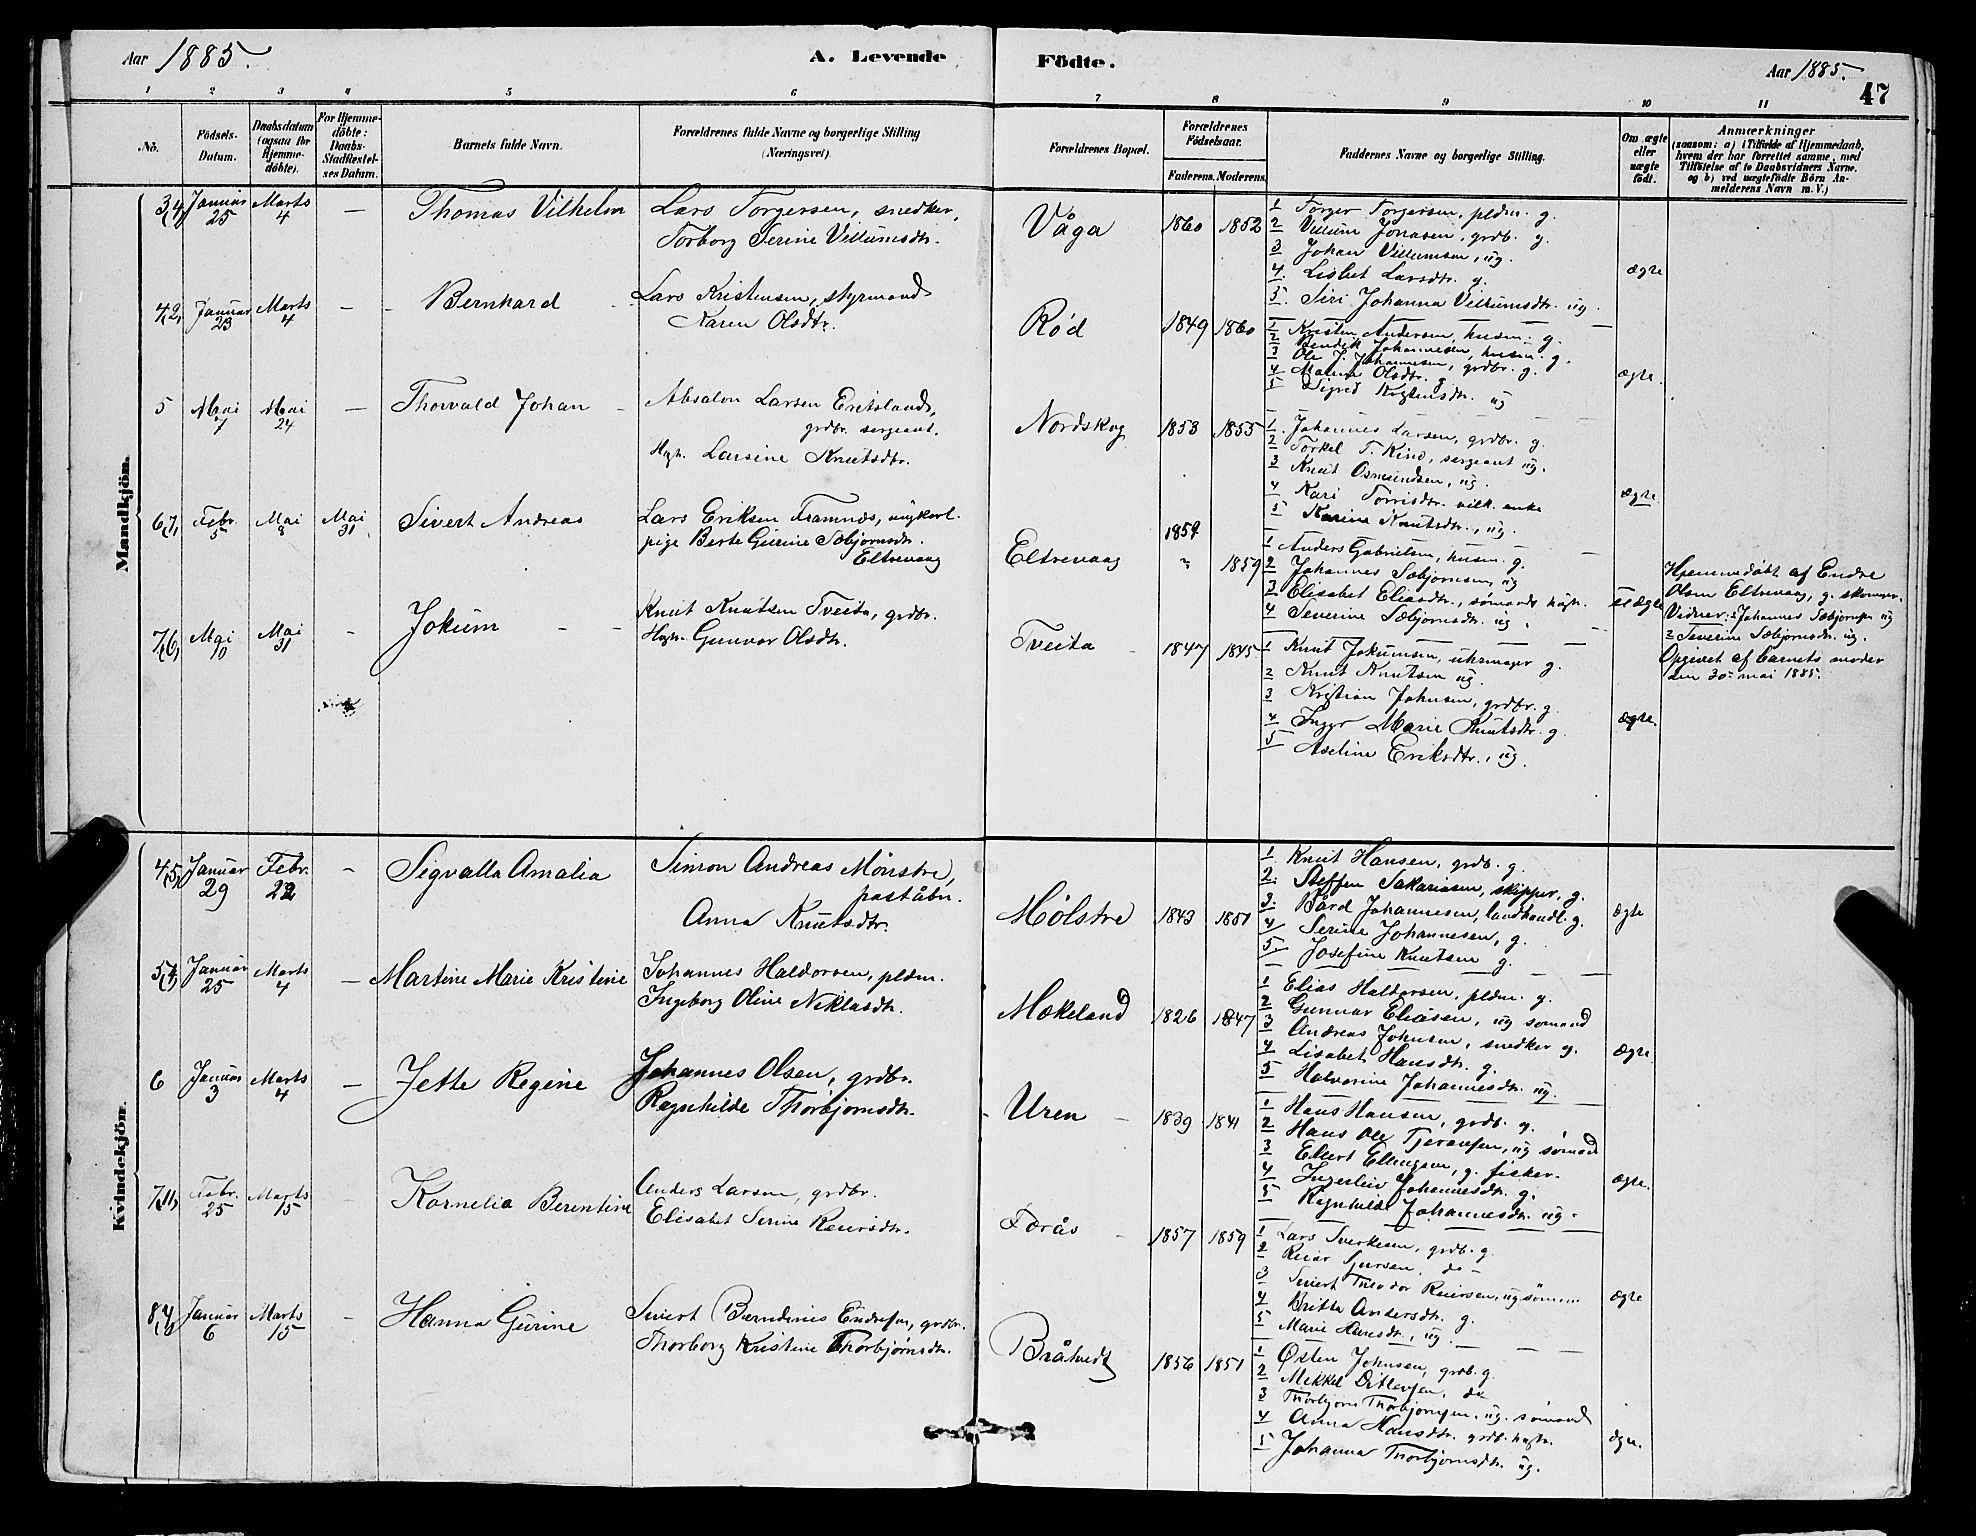 Aar 1885.
A. Levende Fødte.
Aar 1885.
47
1 2 3 4 5 6 7 8 9 10 11
No.
Födsels-
Datum.
Daabsdatum
(ogsaa for
Hjemme-
döbte).
For Hjemme-
döbte:
Daabs-
Stadfæstel-
ses Datum.
Barnets fulde Navn.
Forældrenes fulde Navne og borgerlige Stilling
(Næringsvei).
Forældrenes Bopæl.
Forældrenes
Födselsaar.
Faderens. Moderens.
Faddernes Navne og borgerlige Stilling.
Om ægte
eller
uægte
født.
Anmærkninger
(saasom: a) i Tilfælde af Hjemmedaab,
hvem der har forrettet samme, med
Tilföielse af to Daabsvidners Navne,
og b) ved uægtefödte Börn An-
melderens Navn m. V.)
Mandkjön.
3,4, Januar 25 Marts 4 — Thomas Vilhelm
Lars Torgersen, snedker,
Torborg Serine Villumsdtr.
Våga 1860 1852
1 Torger Torgersen, pldm. g.
2 Villum Jonasen, grdb. g.
3 Johan Villumsen, ug.
4. Lisbet Larsdtr. g.
5. Siri Johanna Villumsdtr. ug.
ægte
4,2, Januar 23 Marts 4 — Bernhard
Lars Kristensen, styrmand
Karen Olsdtr.
Rød 1849 1860
1 Kristen Andersen, husm. g.
2 Bendik Johannesen, husm. g.
3 Ole J. Johannesen, grdbr. g.
4 Malena Olsdtr. g.
5 Sigred Kristensdtr. ug
ægte.
5 Mai 7 Mai 24 — Thorvald Johan
Absalon Larsen Eritsland,
grdbr. sergeant.
Hstr. Larsine Knutsdtr.
Nordskog 1858 1855
1. Johannes Larsen, grdbr. g.
2 Torkel T. Kind, sergeant ug.
3 Knut Osmundsen, ug.
4 Kari Torrisdtr. enke
5 Karine Knutsdtr., ug.
ægte
6,7, Febr. 5 Mai 8 Mai 31 Sivert Andreas
Lars Eriksen Framnæs, ungkarl.
pige Berte Gurine Sæbjørnsdtr.
Eltrevaag
Eltrevaag 1859 " 1859
1 Anders Gabrielsen, husm. g.
2 Johannes Sæbjørnsen, ug
3 Elisabet Eliasdtr., sømands hstr.
4 Severine Sæbjørnsdtr. ug.
uægte
Hjemmedøbt af Endre
Olsen Eltrevaag, g. skomager.
Vidner: 1 Johannes Sæbjørnsen ug
2 Severine Sæbjørnsdtr. ug.
Opgivet af barnets moder
den 30te mai 1885.
7,6, Mai 10 Mai 31 - Jokum
Knut Knutsen Tveita, grdbr.
Hstr. Gunvor Olsdtr.
Tveita 1847 1845
1 Knut Jokumsen, uhrmager g.
2 Knut Knutsen ug.
3 Kristian Johnsen, grdbr. g.
4 Inger Marie Knutsdtr. g.
5 Axeline Eriksdtr., ug.
ægte.
Kvindekjön.
4,5, Januar 29 Febr. 22 - Sigvalla Amalia
Simon Andreas Mønstre,
poståbn.
Anna Knutsdtr.
Mølstre 1843 1851
1. Knut Hansen, grdb. g.
2. Steffen Sakariasen, skipper, g.
3. Bård Johannesen, landhandl. g.
4 Serine Johannesen, g.
5. Josefine Knutsen g.
ægte
5,7, Januar 25 Marts 4 — Martine Marie Kristine
Johannes Haldorsen, pldm.
Ingeborg Oline Niklasdtr.
Mækeland 1826 1847
1 Elias Haldorsen, pldm. g.
2 Gunnar Eliasen, ug sømand
3 Andreas Johnsen, snedker g.
4 Lisabet Hansdtr. g.
5 Halvorine Johannesdtr. ug.
ægte
6 Januar 3 Marts 4 — Jette Regine
Johannes Olsen, grdbr.
Ragnhilde Thorbjørnsdtr.
Uren 1839 1841
1 Hans Hansen, grdb. g.
2 Hans Ole Tjeransen, ug sømand
3 Ellert Ellingsen, g. fisker.
4 Ingerleiv Johannesdtr. g.
5 Ragnhilde Johannesdtr. ug.
ægte.
7,11, Febr. 25 Marts 15 - Kornelia Berentine
Anders Larsen, grdbr.
Elisabet Serine Reiersdtr.
Førås 1857 1859
1 Lars Sverkesen, grdb. g.
2 Reier Sjursen, do -
3 Sivert Theodor Reiersen, ug sømm.
4 Britte Andersdtr. g.
5 Marie Hansdtr., ug.
ægte
8,4, Januar 6 Marts 15 - Hanna Gurine
Sivert Berndines Endresen, grdbr.
Thorborg Kristine Thorbjørnsdtr.
Bråtvedt 1856 1851
1 Østen Johnsen, grdb. g.
2 Mikkel Ditlevsen, do
3 Thorbjørn Thorbjørnsen, ug. sømand
4 Anna Hansdtr. grdb. hstr.
5 Johanna Thorbjørnsdtr. ug.
ægte.